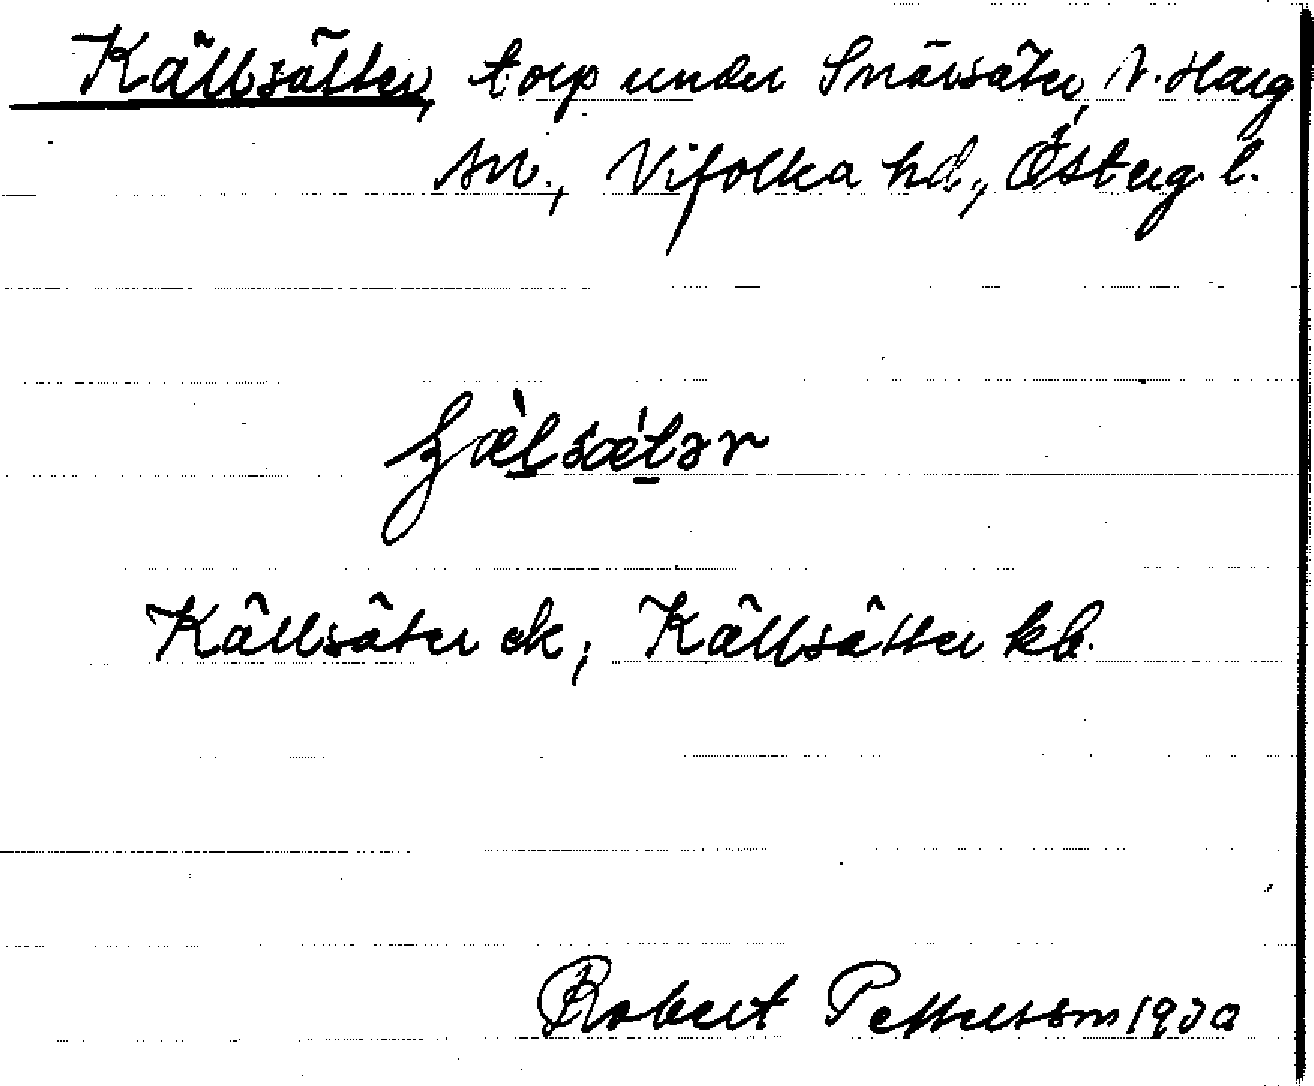 Källsätter, torp under Snårsäter, V. Harg
sn., Vifolka hd., Österg. l.
Källsäter ek, Källsätter kb.
Robert Pettersson 1930